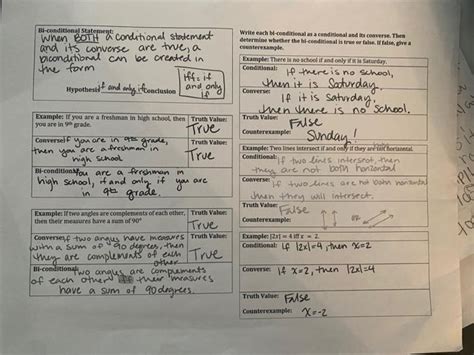 Bi-conditional Statement:
When BOTH a conditional statement
and its converse are true, a
biconditional can be created in
the form
Hypothesis if and only if Conclusion
Iff = if
and only
if
Example: If you are a freshman in high school, then
you are in 9th grade.
Truth Value:
True
Converse: If you are in 9th grade,
then you are a freshman in
high school
Truth Value:
True
Bi-conditional: You are a freshman in
high school, if and only if you are
in 9th grade.
Example: If two angles are complements of each other,
then their measures have a sum of 90°
Truth Value:
True
Converse: If two angles have measures
with a sum of 90 degrees, then
they are complements of each
other
Truth Value:
True
Bi-conditional: Two angles are complements
of each other iff their measures
have a sum of 90 degrees.
Write each bi-conditional as a conditional and its converse. Then
determine whether the bi-conditional is true or false. If false, give a
counterexample.
Example: There is no school if and only if it is Saturday.
Conditional: If there is no school,
then it is Saturday.
Converse: If it is Saturday,
then there is no school.
Truth Value: False
Counterexample: Sunday!
Example: Two lines intersect if and only if they are not horizontal.
Conditional: If two lines intersect, then
they are not both horizontal
Converse: If two lines are not both horizontal
then they will intersect.
Truth Value: False
Counterexample:
Example: |2x| = 4 iff x = 2.
Conditional: If |2x|=4, then x=2
Converse: If x=2, then |2x|=4
Truth Value: False
Counterexample: x=-2